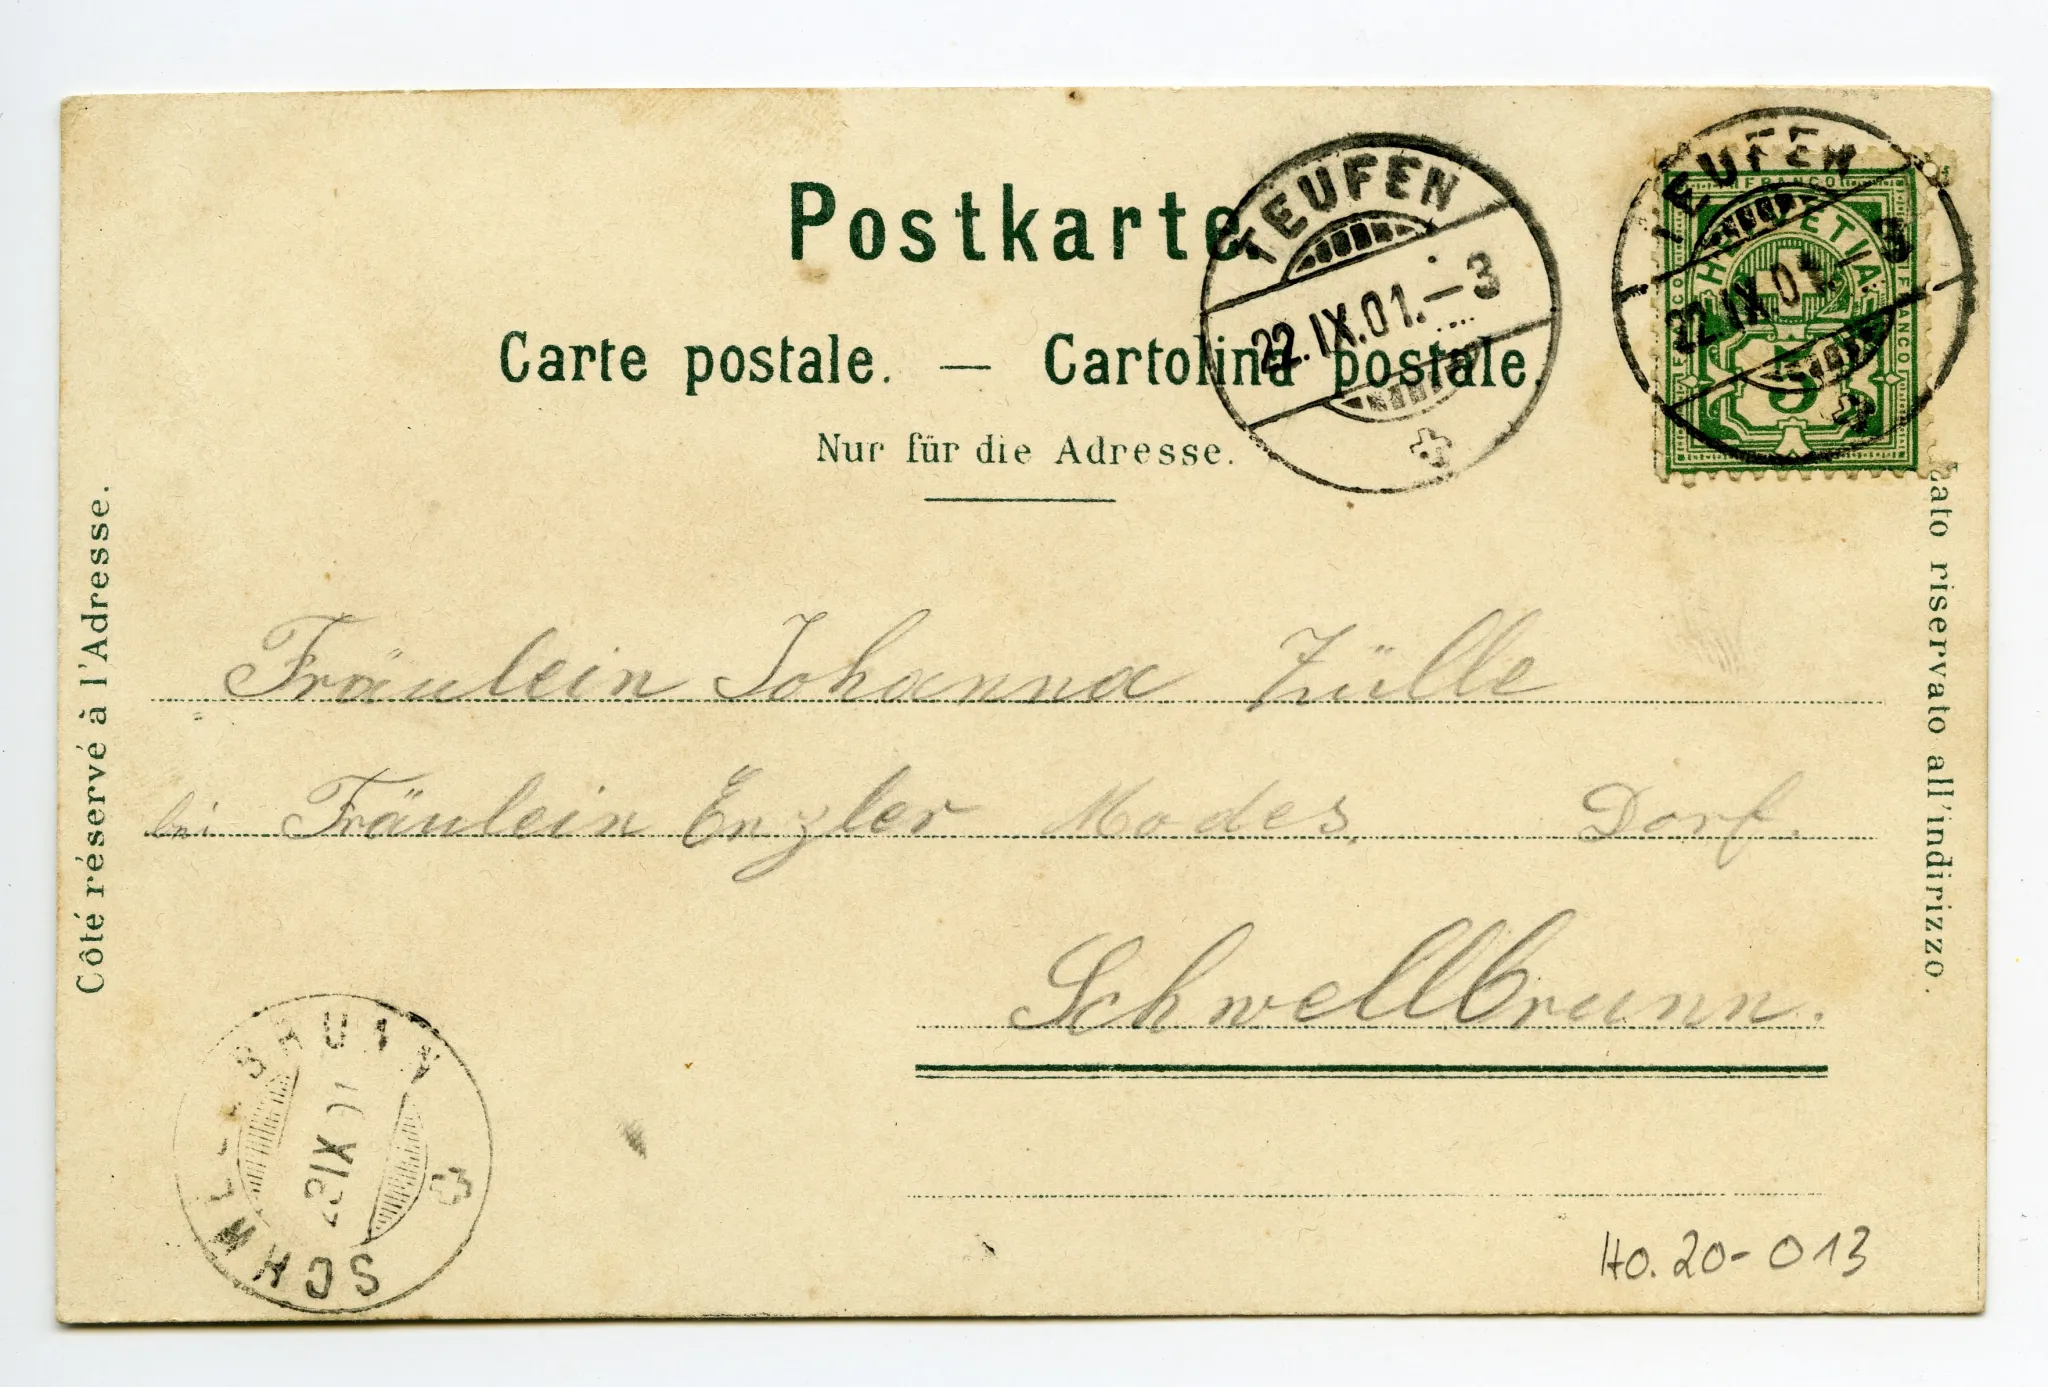 Postkarte.
Carte postale. — Cartolina postale.
Nur für die Adresse.
TEUFEN
22.IX.01.–3
TEUFEN
22.IX.01. 3
FRANCO
HELVETIA
FRANCO
FRANCO
5
Côté réservé à l'Adresse.
Lato riservato all'indirizzo.
Fräulein Johanna Zülle
bei Fräulein Enzler Modes. Dorf.
Schwellbrunn.
SCHWELLBRUNN
22 IX 01
HO.20-013